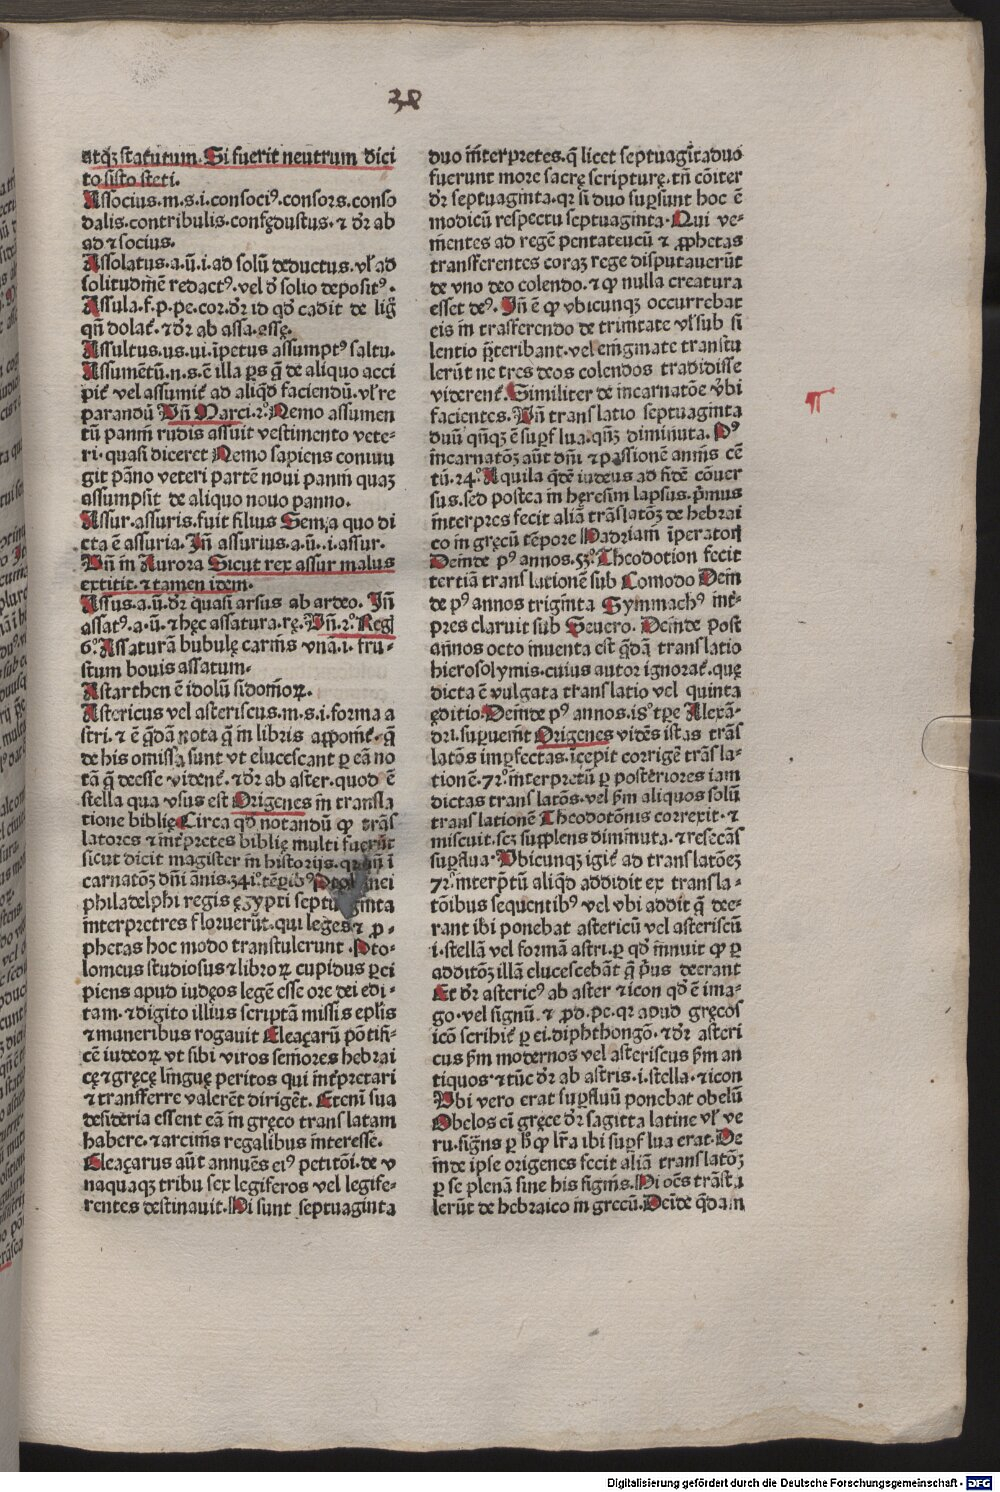 38
atqꝫ statutum. Si fuerit neutrum dici
to sisto steti.
Associus.m.s.i.consociꝰ.consors.conso
dalis.contribulis.confędustus.⁊ dr̄ ab
ad ⁊ socius.
Assolatus.a.ū.i.ad solū deductus.vl̄ ad
solitudinē redactꝰ.vel d̄ solio depositꝰ.
Assula.f.p.pe.cor.dr̄ id qd̄ cadit de liḡ
qn̄ dolat̄.⁊ dr̄ ab assa.assę.
Assultus.us.ui.īpetus assumptꝰ saltu.
Assumētū.n.s.ē illa ps̄ q̄ de aliquo acci
pit̄ vel assumit̄ ad aliqd̄ faciendū.vl̄ re
parandū Vn̄ Marci.2. Nemo assumen
tū panni rudis assuit vestimento vete-
ri.quasi diceret Nemo sapiens coniun
git pāno veteri partē noui panni quaꝫ
assumpsit de aliquo nouo panno.
Assur.assuris.fuit filius Sem.a quo di
cta ē assuria. In̄ assurius.a.ū.i.assur.
Vn̄ in Aurora Sicut rex assur malus
extitit.⁊ tamen idem.
Assus.a.ū.dr̄ quasi arsus ab ardeo. In̄
assatꝰ.a.ū.⁊ hęc assatura.rę. Vn̄.2.Reg
6. Assaturā bubulę carnis vnā.i. fru-
stum bouis assatum.
Astarthen ē idolū sidonioꝝ.
Astericus vel asteriscus.m.s.i.forma a
stri.⁊ ē q̄dā nota q̄ in libris appōnit̄.q̄
de his omissa sunt vt elucescant ꝑ eā no
tā q̄ deesse vident̄.⁊ dr̄ ab aster.quod ē
stella qua vsus est Origenes in transla
tione biblię Circa qd̄ notandū ꝙ trās
latores ⁊ int̄pretes biblię multi fuerūt
sicut dicit magister in historijs. ī
carnatōꝫ dn̄i ānis.341.tēꝑibꝰ
philadelphi regis ęgypti septuaginta
interpretres floruerūt.qui leges ⁊ ꝓ-
phetas hoc modo transtulerunt. Pto-
lomeus studiosus ⁊ libroꝝ cupidus ꝑci
piens apud iudęos legē esse ore dei edi-
tam.⁊ digito illius scriptā missis eplīs
⁊ muneribus rogauit Eleaçarū pōtifi-
cē iudeoꝝ vt sibi viros seniores hebrai
cę ⁊ gręcę linguę peritos qui int̄pretari
⁊ transferre valerēt dirigēt. Eteni sua
desideria essent eā in gręco translatam
habere.⁊ arcimis regalibus inesse.
Eleaçarus aūt annuēs eiꝰ petitōi.de v
naquaqꝫ tribu sex legiferos vel legife-
rentes destinauit. Hi sunt septuaginta
duo interpretes.q̄ licet septuagītaduo
fuerunt more sacrę scripturę.tn̄ cōiter
dr̄ septuaginta.qr si duo suꝑsunt hoc ē
modicū respectu septuaginta. Qui ve-
nientes ad regē pentateucū ⁊ ꝓphetas
transferentes coraꝫ rege disputauerūt
de vno deo colendo.⁊ ꝙ nulla creatura
esset deꝰ. In̄ ē ꝙ vbicunqꝫ occurrebat
eis in trasferendo de trinitate vl̄ sub si
lentio p̄teribant.vel enigmate transtu
lerūt ne tres deos colendos tradidisse
viderent̄. Similiter de incarnatōe v̄bi
facientes. Vn̄ translatio septuaginta
duū qn̄qꝫ ē suꝑflua.qn̄qꝫ diminuta. Pꝰ
incarnatōꝫ aūt dn̄i ⁊ passionē annis cē
tū.24. Aquila qdē iudeus ad fidē cōuer
sus.sed postea in hęresim lapsus.pmus
interpres fecit aliā trāslatōꝫ de hebrai
co in gręcū tēpore Hadriani īperatori
Deinde pꝰ annos.53. Theodotion fecit
tertiā translationē sub Comodo Dein
de pꝰ annos triginta Symmachꝰ int̄-
pres claruit sub Seuero. Deinde post
annos octo inuenta est q̄dā translatio
hierosolymis.cuius autor ignorat̄.quę
dicta ē vulgata translatio vel quinta
ęditio. Deinde pꝰ annos.18.tꝑe Alexā-
dri.suꝑuenit Origenes vidēs istas trās
latōs imꝑfectas.icepit corrigē trāsla-
tionē.72.interpretū ꝑ posteriores iam
dictas translatōs.vel ꝑm aliquos solū
translationē Theodotōnis correxit.⁊
miscuit.scꝫ supplens diminuta.⁊ resecās
suꝑflua. Vbicunqꝫ igit̄ ad translatōeꝫ
72.interp̄tū aliqd̄ addidit ex transla-
tōibus sequentibꝰ vel vbi addit q̄ dee-
rant ibi ponebat astericū vel asteriscū
i.stellā vel formā astri.ꝑ qd̄ innuit ꝙ ꝑ
additōꝫ illā elucescebāt q̄ pͥus deerant
Et dr̄ astericꝰ ab aster ⁊ icon qd̄ ē ima-
go.vel signū.⁊ ꝓd.pe.qr apud gręcos
icō scribit̄ ꝑ ei.diphthongō.⁊ dr̄ asteri
cus ꝑm modernos vel asteriscus ꝑm an
tiquos ⁊ tūc dr̄ ab astris.i.stella.⁊ icon
Vbi vero erat suꝑfluū ponebat obelū
Obelos eī gręce dr̄ sagitta latine vl̄ ve
ru.signs ꝑ h̄ ꝙ lr̄a ibi suꝑflua erat. De
inde ipse origenes fecit aliā translatōꝫ
ꝑ se plenā sine his signis. Hi oēs trāstu
lerūt de hebraico in grecū. Deīde q̄dam
Digitalisierung gefördert durch die Deutsche Forschungsgemeinschaft - DFG